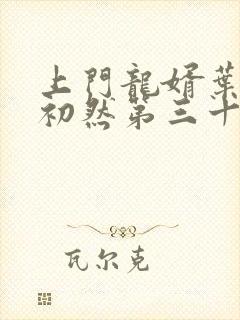 上門龍婿葉
初然第三十
瓦尔克